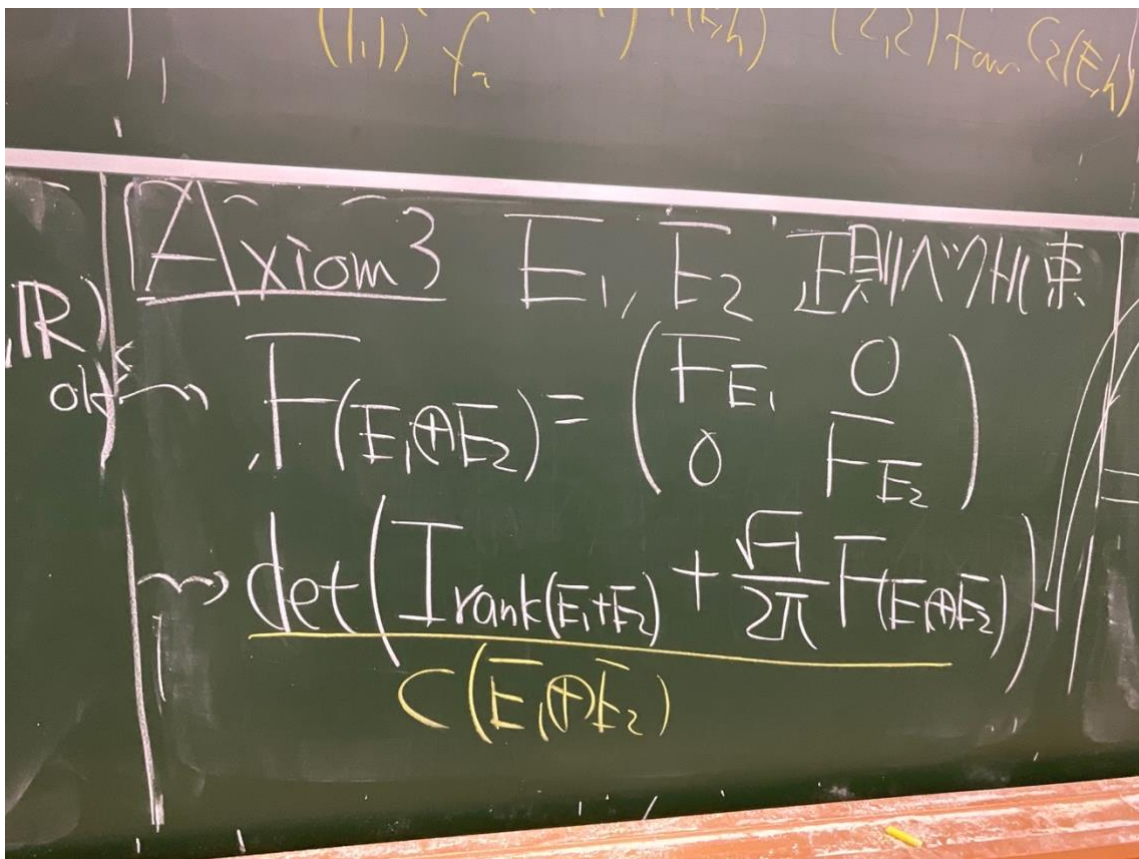 (1,1) f (E,h) (2,2) C₂(E,h)
Axiom3 E₁, E₂ 正則ベクトル束
,R)
ok
⇝ F(E₁⊕E₂) = (F_E₁ 0
0 F_E₂)
⇝ det(I rank(E₁+E₂) + √-1/2π F(E₁⊕E₂))
C(E₁⊕E₂)